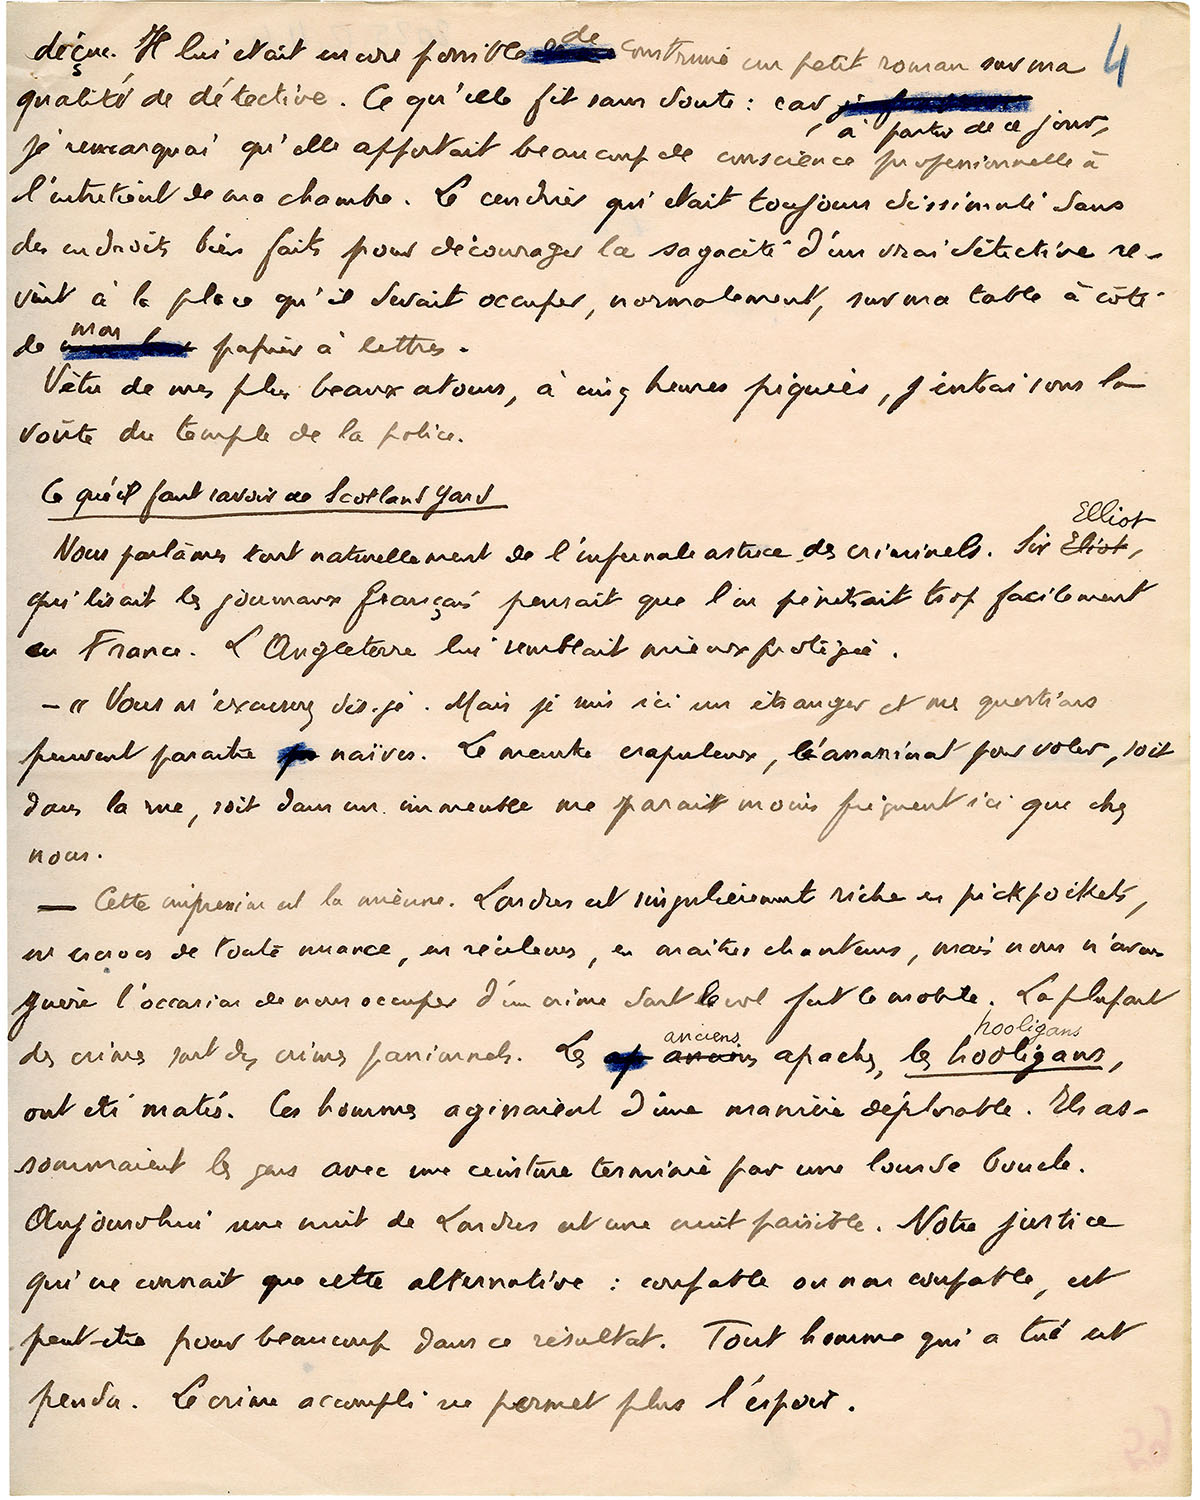 déçue. Il lui était encore possible de construire un petit roman sur ma 4
qualité de détective. Ce qu'elle fit sans doute : car
à partir de ce jour,
je remarquai qu'elle apportait beaucoup de conscience professionnelle à
l'entretient de ma chambre. Le cendrier qui était toujours dissimulé dans
des endroits bien faits pour décourager la sagacité d'un vrai détective re-
vint à la place qu'il devait occuper, normalement, sur ma table à côté
de mon papier à lettres.
Vêtu de mes plus beaux atours, à cinq heures piquées, j'entrai sous la
voûte du temple de la police.
Ce qu'il faut savoir de Scotland Yard
Elliot
Nous parlâmes tout naturellement de l'infernale astuce des criminels. Sir Eliot,
qui lisait les journaux français pensait que l'on pénétrait trop facilement
en France. L'Angleterre lui semblait mieux protégée.
– « Vous m'excuserez dis-je. Mais je suis ici un étranger et mes questions
peuvent paraitre naïves. Le meurtre crapuleux, l'assassinat pour voler, soit
dans la rue, soit dans un immeuble me parait moins fréquent ici que chez
nous.
— Cette impression est la mienne. Londres est singulièrement riche en pickpockets,
en escrocs de toute nuance, en recéleurs, en maîtres chanteurs, mais nous n'avons
guère l'occasion de nous occuper d'un crime dont le vol fut le mobile. La plupart
anciens hooligans
des crimes sont des crimes passionnels. Les anciens apaches, les hooligans,
ont été matés. Ces hommes agissaient d'une manière déplorable. Ils as-
sommaient les gens avec une ceinture terminée par une lourde boucle.
Aujourd'hui une nuit de Londres est une nuit paisible. Notre justice
qui ne connait que cette alternative : coupable ou non coupable, est
peut-être pour beaucoup dans ce résultat. Tout homme qui a tué est
pendu. Le crime accompli ne permet plus l'espoir.